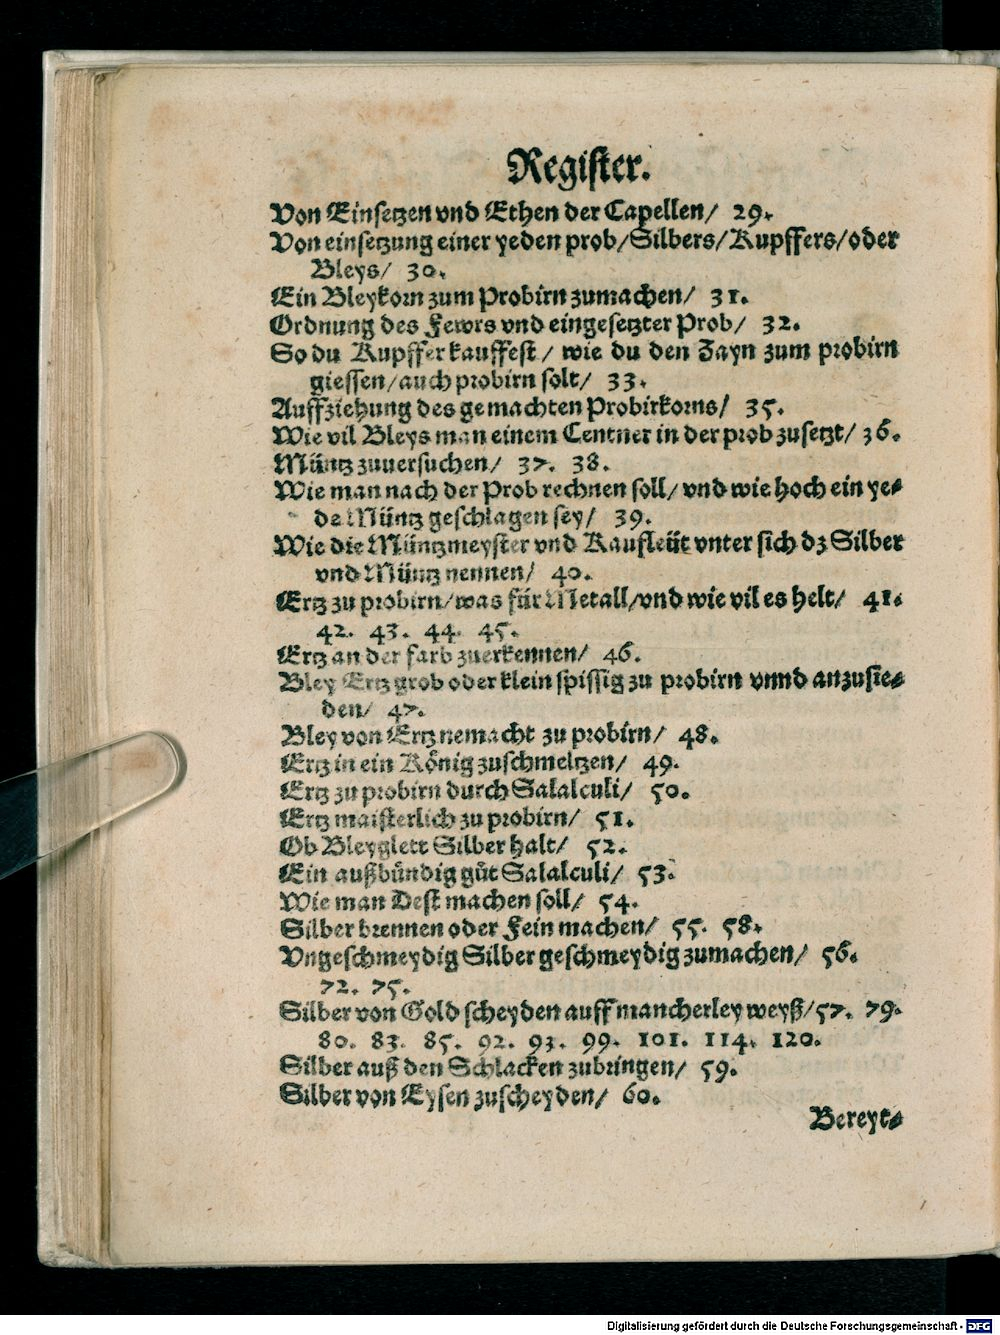 Register.
Von Einsetzen vnd Ethen der Capellen/ 29.
Von einsetzung einer yeden prob/Silbers/Kupffers/oder
Bleys/ 30.
Ein Bleykorn zum Probirn zumachen/ 31.
Ordnung des Fewrs vnd eingesetzter Prob/ 32.
So du Kupffer kauffest/ wie du den Zayn zum probirn
giessen/auch probirn solt/ 33.
Auffziehung des gemachten Probirkorns/ 35.
Wie vil Bleys man einem Centner in der prob zusetzt/ 36.
Müntz zuuersuchen/ 37. 38.
Wie man nach der Prob rechnen soll/ vnd wie hoch ein ye-
de Müntz geschlagen sey/ 39.
Wie die Müntzmeyster vnd Kaufleüt vnter sich dz Silber
vnd Müntz nennen/ 40.
Ertz zu probirn/was für Metall/vnd wie vil es helt/ 41.
42. 43. 44. 45.
Ertz an der farb zuerkennen/ 46.
Bley Ertz grob oder klein spissig zu probirn vnnd anzusie-
den/ 47.
Bley von Ertz nemacht zu probirn/ 48.
Ertz in ein König zuschmeltzen/ 49.
Ertz zu probirn durch Salalculi/ 50.
Ertz maisterlich zu probirn/ 51.
Ob Bleyglett Silber halt/ 52.
Ein außbündig gůt Salalculi/ 53.
Wie man Test machen soll/ 54.
Silber brennen oder Fein machen/ 55. 58.
Vngeschmeydig Silber geschmeydig zumachen/ 56.
72. 75.
Silber von Gold scheyden auff mancherley weyß/57. 79.
80. 83. 85. 92. 93. 99. 101. 114. 120.
Silber auß den Schlacken zubringen/ 59.
Silber von Eysen zuscheyden/ 60.
Bereyt-
Digitalisierung gefördert durch die Deutsche Forschungsgemeinschaft - DFG